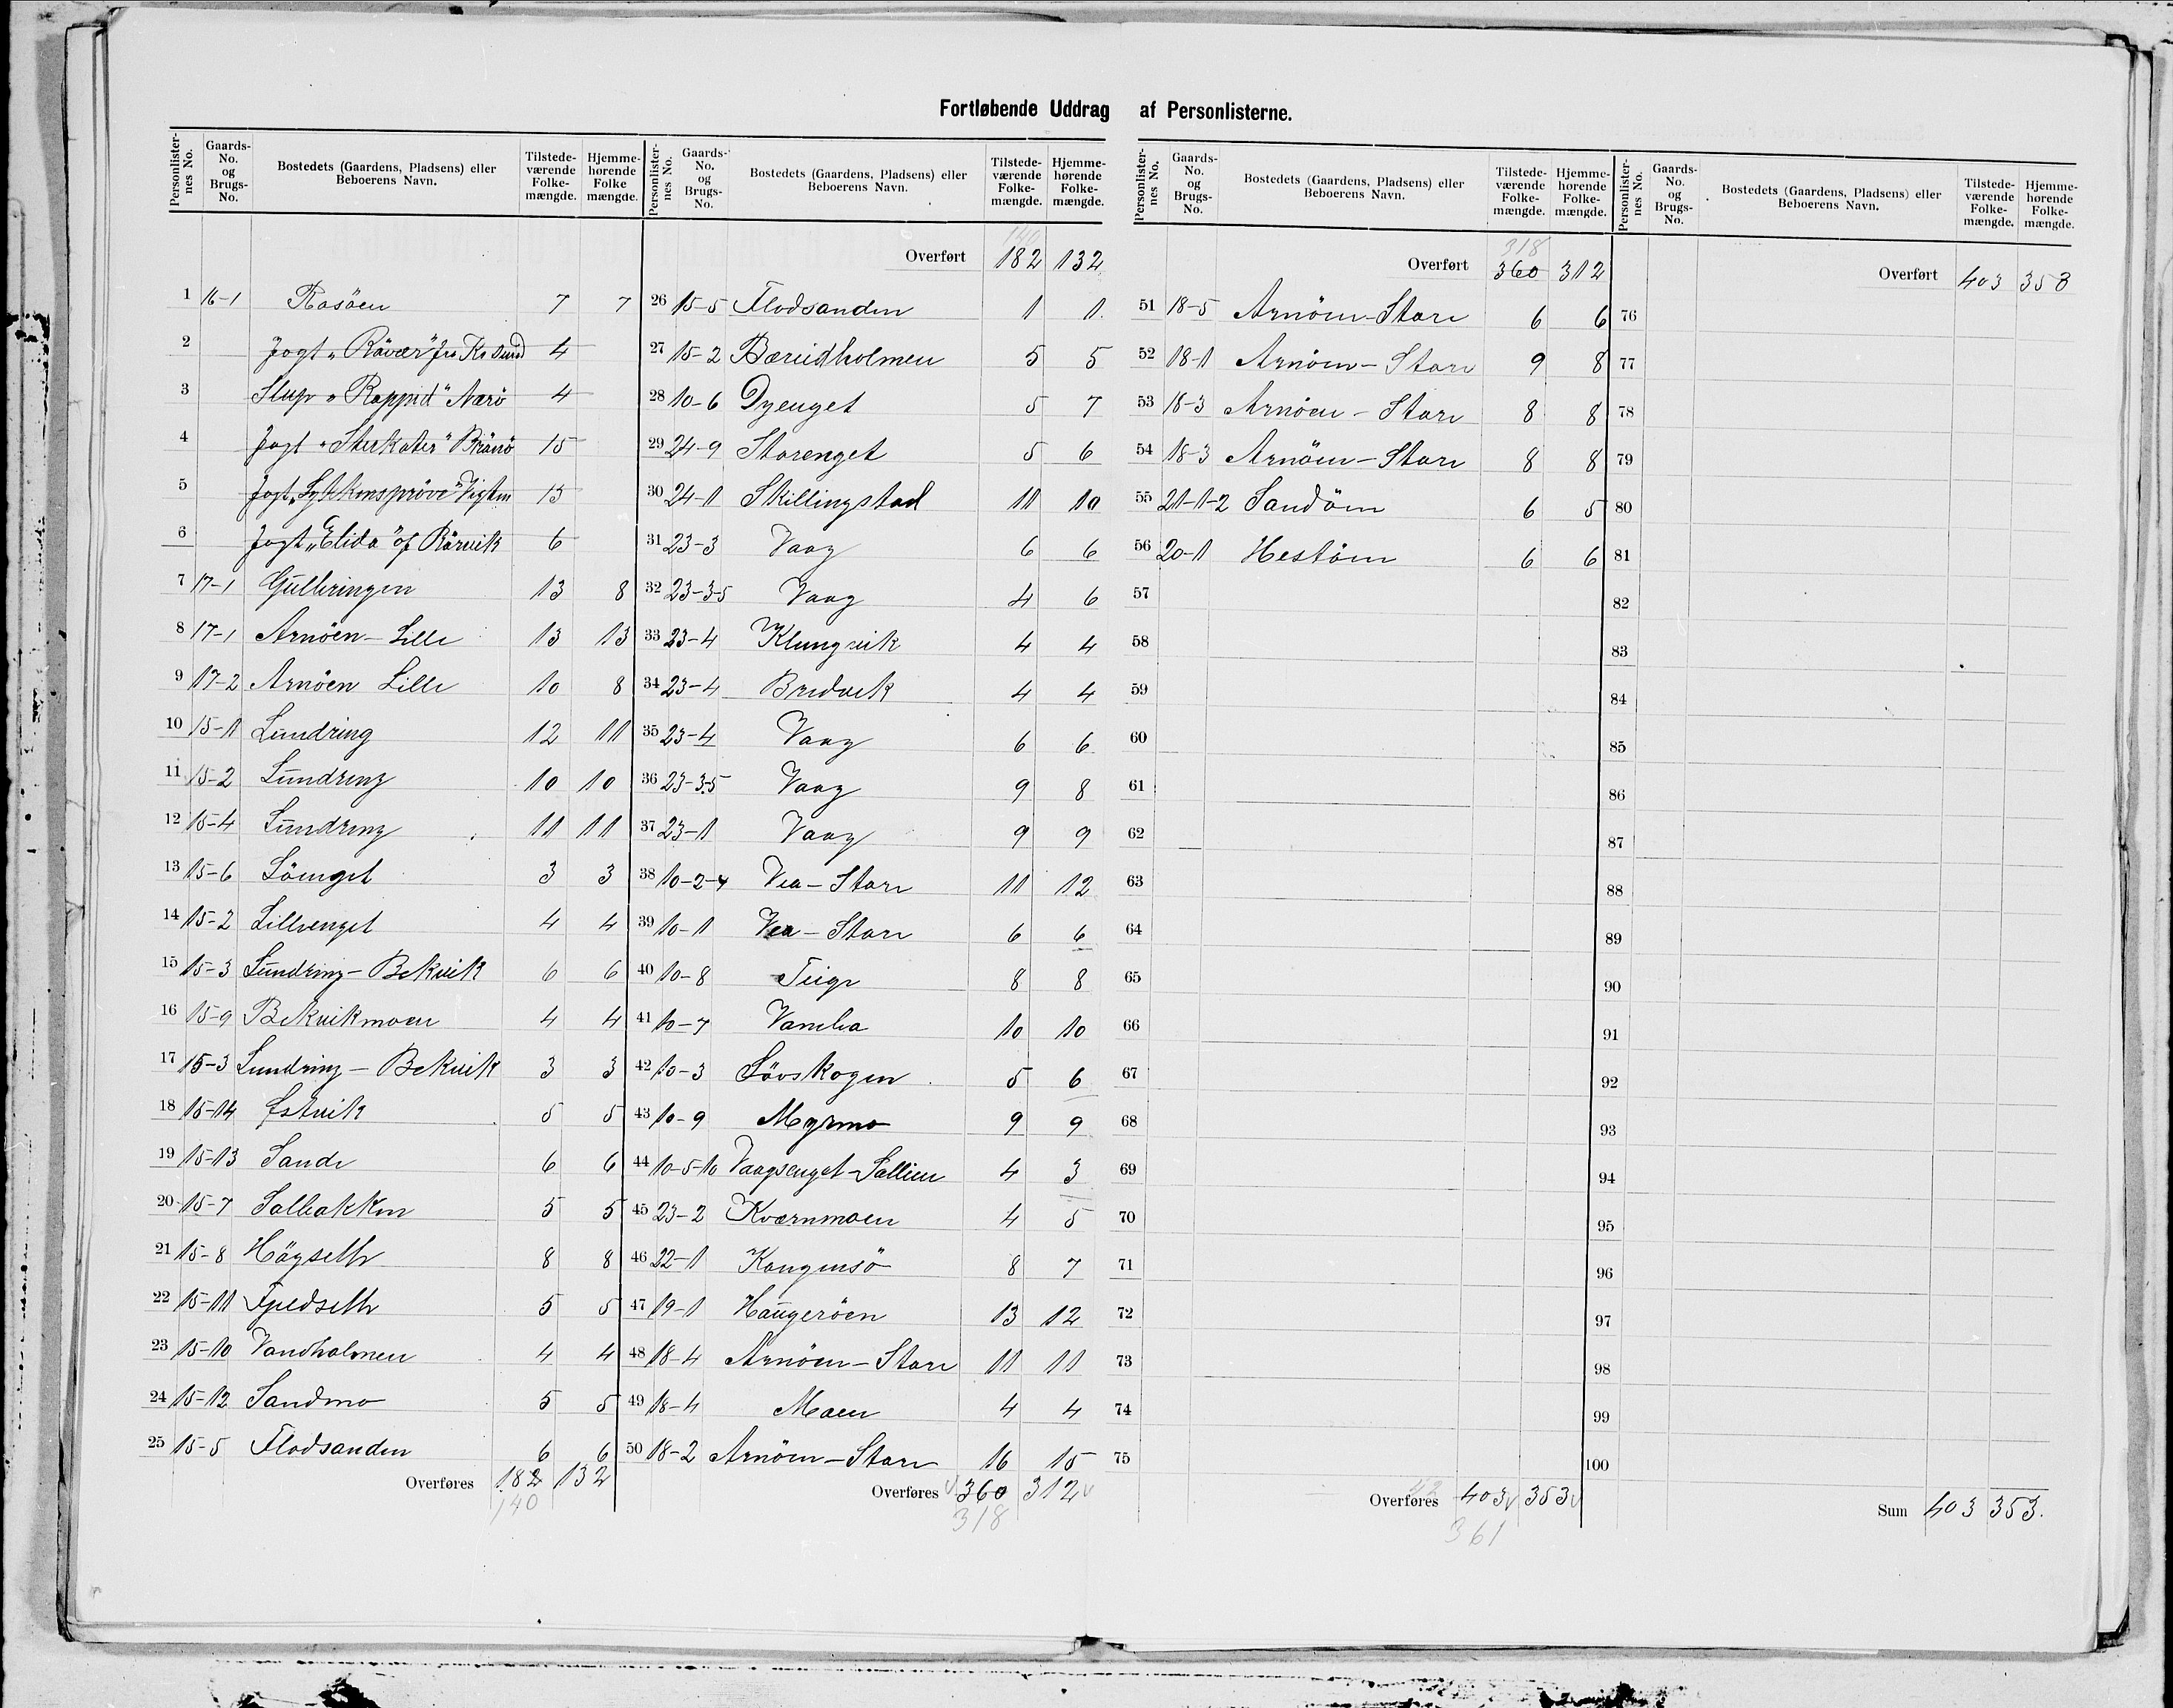 Fortløbende Uddrag af Personlisterne.
Personlister-nes No. Gaards-No. og Brugs-No. Bostedets (Gaardens, Pladsens) eller Beboerens Navn. Tilstede-værende Folke-mængde. Hjemme-hørende Folke mængde.
1 16-1 Rosöen 7 7
2 Jogt „Råvær" fra Kr.sund 4
3 Slup „Rappid" Nærö 4
4 Jogt „Sterkoter" Brönö 15
5 Jogt „Lykkensprøve" Vigten 15
6 Jogt „Elida" af Rörvik 6
7 17-1 Gulleringen 13 8
8 17-1 Arnöen-Lille 13 13
9 17-2 Arnöen Lille 10 8
10 15-1 Lundring 12 11
11 15-2 Lundring 10 10
12 15-4 Lundring 11 11
13 15-6 Löenget 3 3
14 15-2 Lilleenget 4 4
15 15-3 Lundring-Bekvik 6 6
16 15-9 Bekvikmoen 4 4
17 15-3 Lundring-Bekvik 3 3
18 15-14 Estvik 5 5
19 15-13 Sande 6 6
20 15-7 Solbakken 5 5
21 15-8 Högseth 8 8
22 15-11 Fjedseth 5 5
23 15-10 Vandholmen 4 4
24 15-12 Sandmo 5 5
25 15-5 Flodsanden 6 6
Overføres 182 132
140
Personlister-nes No. Gaards-No. og Brugs-No. Bostedets (Gaardens, Pladsens) eller Beboerens Navn. Tilstede-værende Folke-mængde. Hjemme-hørende Folke-mængde.
140
Overført 182 132
26 15-5 Flodsanden 1 1
27 15-2 Bæreidholmen 5 5
28 10-6 Dyenget 5 7
29 24-9 Storenget 5 6
30 24-1 Skillingstad 11 10
31 23-3 Vaag 6 6
32 23-3-5 Vaag 4 6
33 23-4 Klungvik 4 4
34 23-4 Bredvik 4 4
35 23-4 Vaag 6 6
36 23-3.5 Vaag 9 8
37 23-1 Vaag 9 9
38 10-2-4 Vea-Store 11 12
39 10-1 Vea-Store 6 6
40 10-8 Teige 8 8
41 10-7 Vamba 10 10
42 10-3 Lövskogen 5 6
43 10-9 Myrmo 9 9
44 10-5-10 Vaagsenget-Sallien 4 3
45 23-2 Kværnmoen 4 5
46 22-1 Kongensö 8 7
47 19-1 Haugeröen 13 12
48 18-4 Arnöen-Store 11 11
49 18-4 Moen 4 4
50 18-2 Arnöen-Store 16 15
Overføres 360 312
318
Personlister-nes No. Gaards-No. og Brugs-No. Bostedets (Gaardens, Pladsens) eller Beboerens Navn. Tilstede-værende Folke-mængde. Hjemme-hørende Folke-mængde.
318
Overført 360 312
51 18-5 Arnöen-Store 6 6
52 18-1 Arnöen-Store 9 8
53 18-3 Arnöen-Store 8 8
54 18-3 Arnöen-Store 8 8
55 21-1-2 Sandöen 6 5
56 20-1 Hestöen 6 6
57
58
59
60
61
62
63
64
65
66
67
68
69
70
71
72
73
74
75
Overføres 403 353
361
Personlister-nes No. Gaards-No. og Brugs-No. Bostedets (Gaardens, Pladsens) eller Beboerens Navn. Tilstede-værende Folke-mængde. Hjemme-hørende Folke-mængde.
Overført 403 353
76
77
78
79
80
81
82
83
84
85
86
87
88
89
90
91
92
93
94
95
96
97
98
99
100
Sum 403 353.